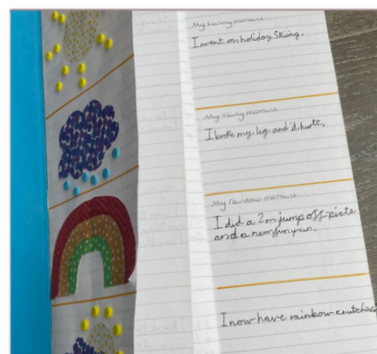 My sunny moment
I went on holiday Skiing.
My rainy moment
I broke my leg and it hurts,
My rainbow moment
I did a 2m jump off-piste
and a
I now have rainbow crutches